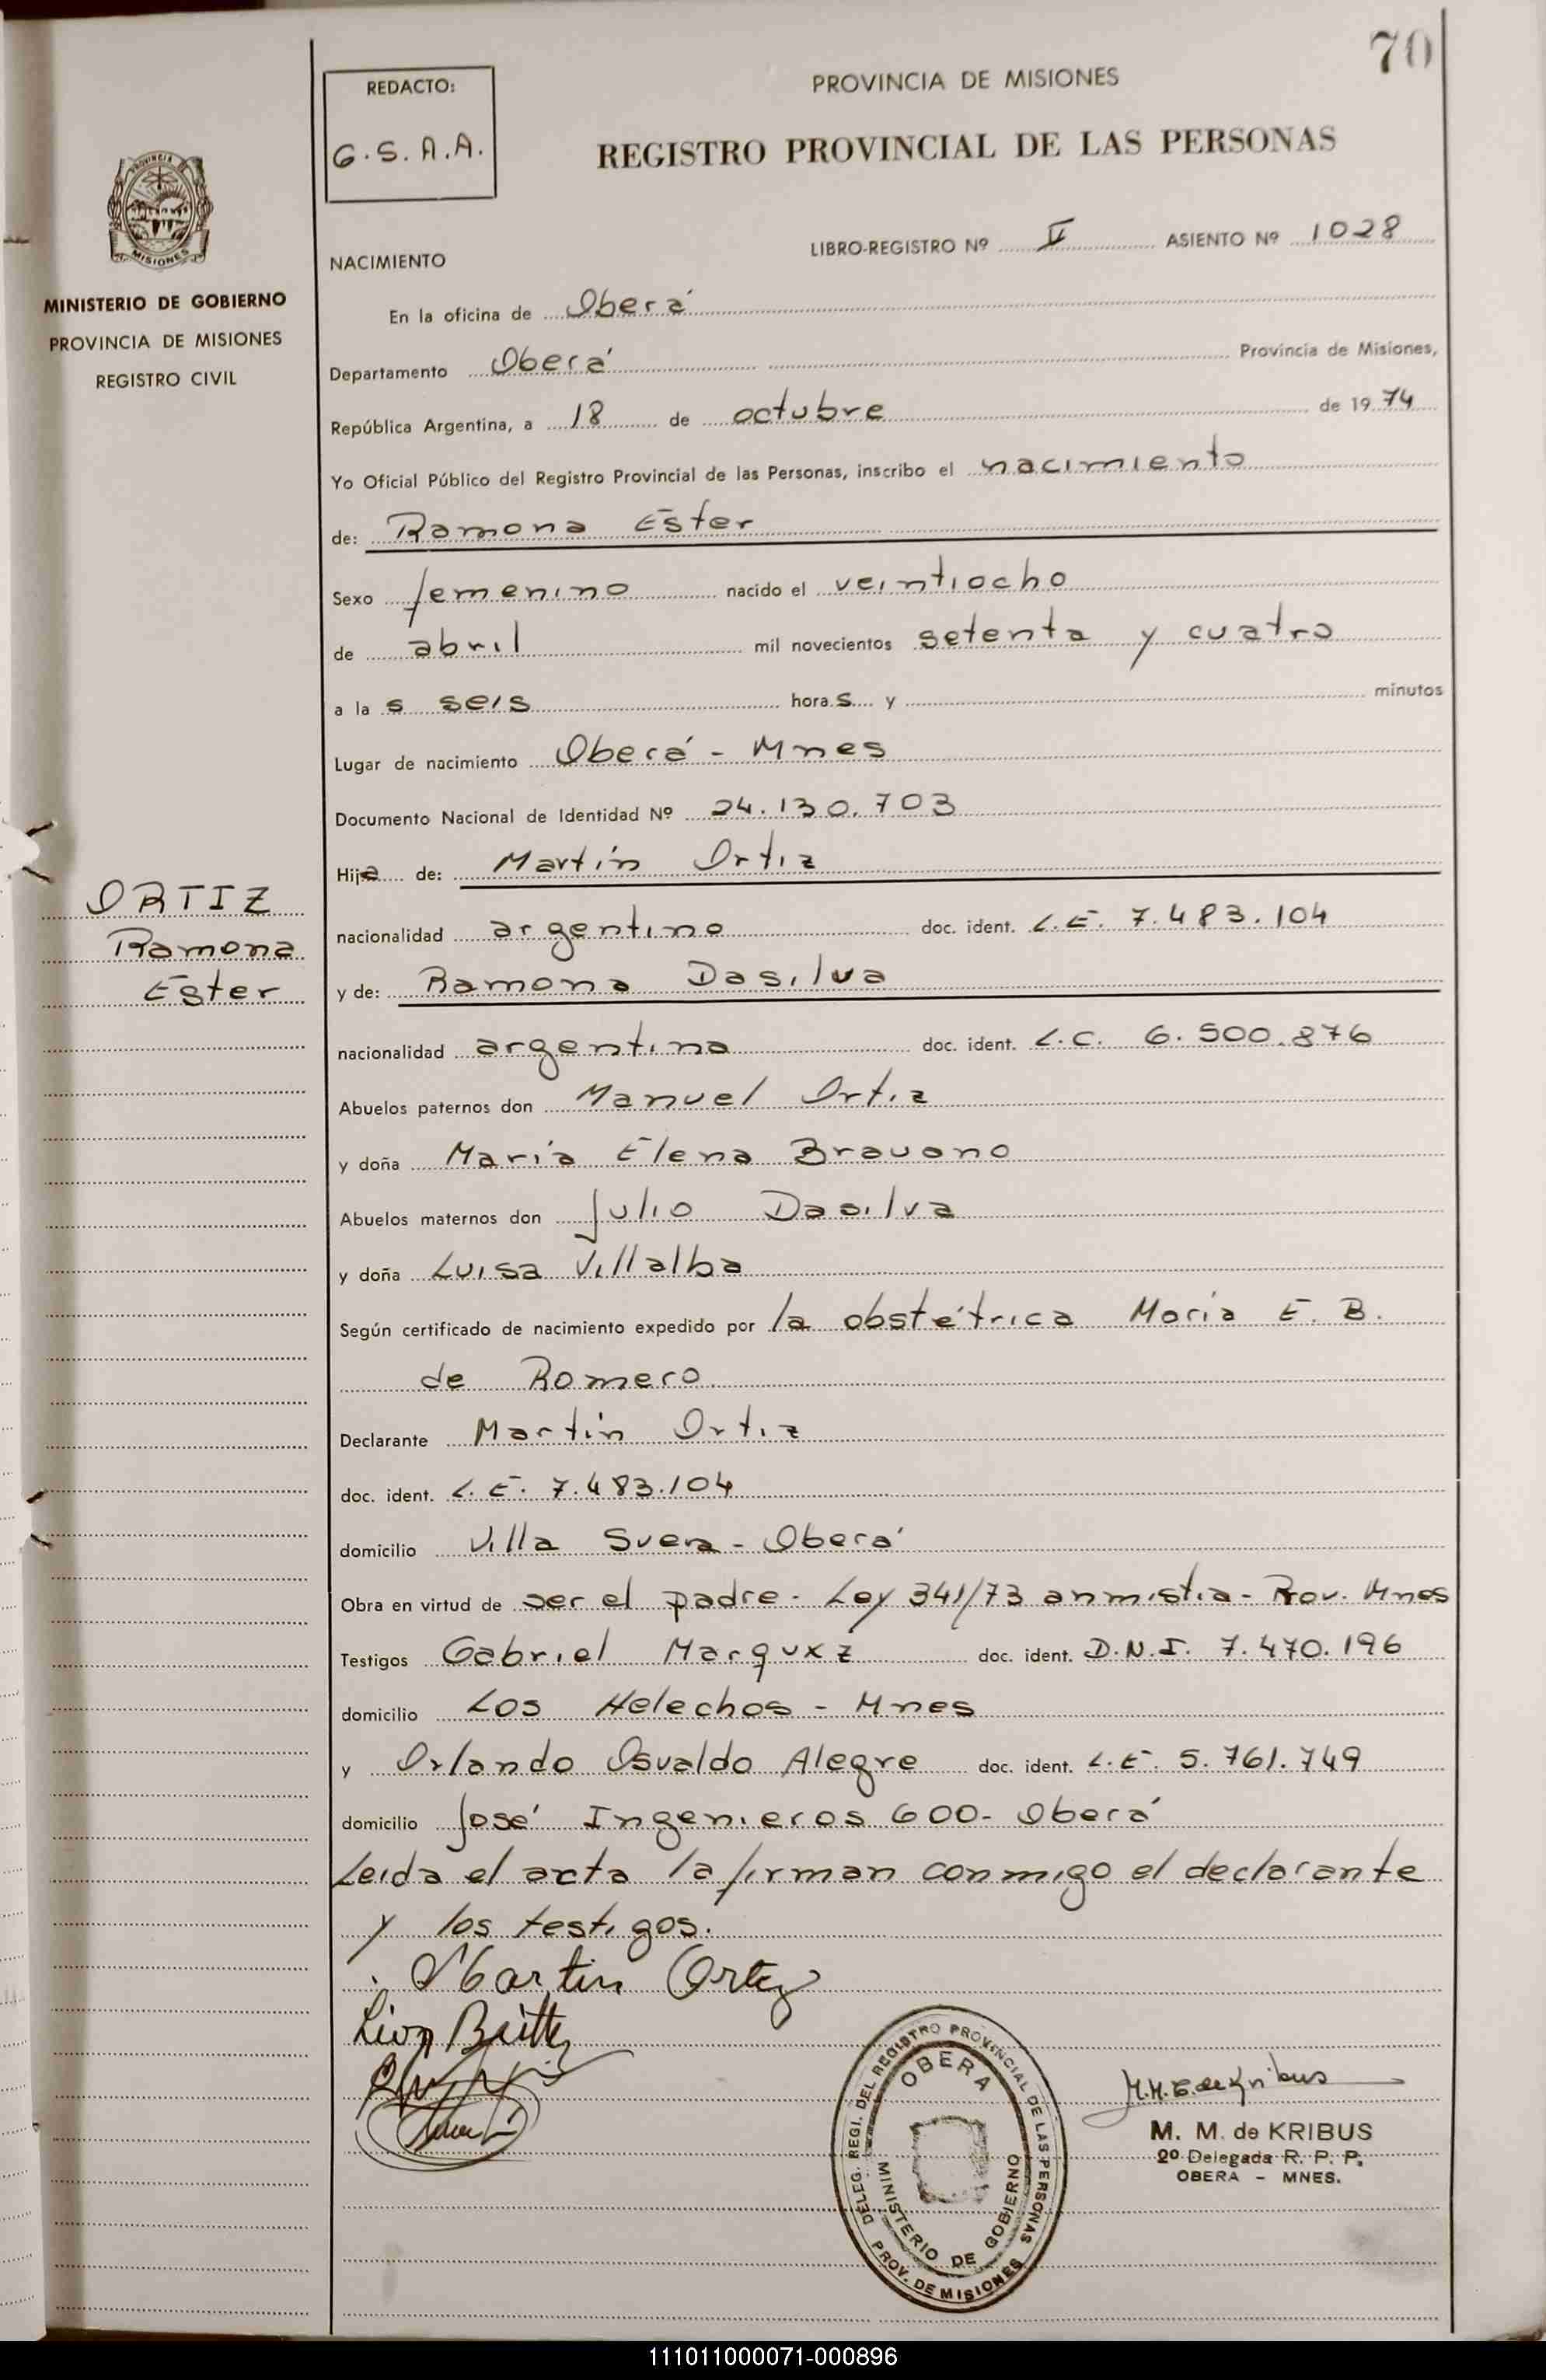 70
REDACTO:
G.S.A.A.
PROVINCIA DE MISIONES
REGISTRO PROVINCIAL DE LAS PERSONAS
PROVINCIA
MISIONES
MINISTERIO DE GOBIERNO
PROVINCIA DE MISIONES
REGISTRO CIVIL
NACIMIENTO
LIBRO-REGISTRO Nº II ASIENTO Nº 1028
En la oficina de Oberá
Departamento Oberá Provincia de Misiones,
República Argentina, a 18 de octubre de 1974
Yo Oficial Público del Registro Provincial de las Personas, inscribo el nacimiento
de: Ramona Ester
Sexo femenino nacido el veintiocho
de abril mil novecientos setenta y cuatro
a las seis horas y minutos
Lugar de nacimiento Oberá - Mnes
Documento Nacional de Identidad Nº 24.130.703
Hija de: Martín Ortiz
ORTIZ
Ramona
Ester
nacionalidad argentino doc. ident. L.E. 7.483.104
y de: Ramona Dasilva
nacionalidad argentina doc. ident. L.C. 6.500.876
Abuelos paternos don Manuel Ortiz
y doña María Elena Bravano
Abuelos maternos don Julio Dasilva
y doña Luisa Villalba
Según certificado de nacimiento expedido por la obstétrica María E. B.
de Romero
Declarante Martín Ortiz
doc. ident. L.E. 7.483.104
domicilio Villa Svea - Oberá
Obra en virtud de ser el padre - Ley 341/73 anmistia - Prov. Mnes
Testigos Gabriel Marquxz doc. ident. D.N.I. 7.470.196
domicilio Los Helechos - Mnes
y Orlando Osvaldo Alegre doc. ident. L.E. 5.761.749
domicilio José Ingenieros 600 - Oberá
Leida el acta la firman conmigo el declarante
y los testigos.
Martin Ortiz
M.M.E. de Kribus
M. M. de KRIBUS
2º Delegada R. P. P.
OBERA - MNES.
DELEG. REGI. DEL REGISTRO PROVINCIAL DE LAS PERSONAS
PROV. DE MISIONES
OBERA
MINISTERIO DE GOBIERNO
111011000071-000896